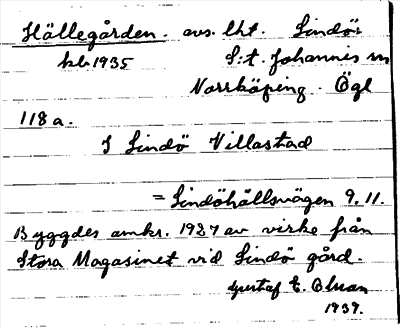 Hällegården. avs. lht. Lindör
kb. 1935 S:t. Johannis sn
Norrköping. Ögl
118 a.
I Lindö Villastad
= Lindöhällsvägen 9. 11.
Byggdes omkr. 1927 av virke från
Stora Magasinet vid Lindö gård.
Gustaf E. Olsson
1939.